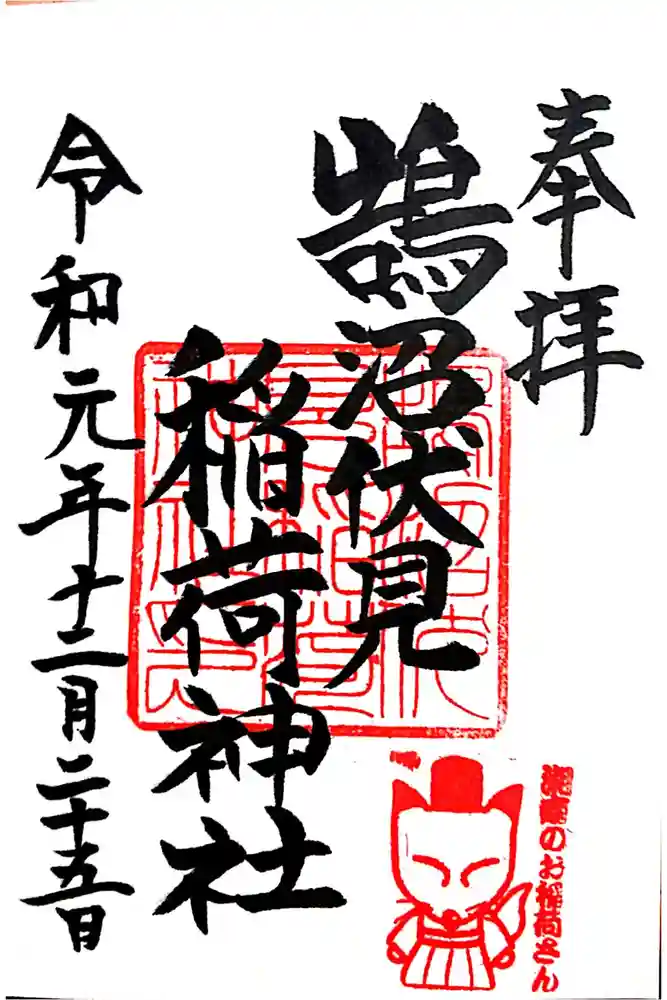 奉拝
鵠沼伏見
稲荷神社
令和元年十二月二十五日
湘南のお稲荷さん